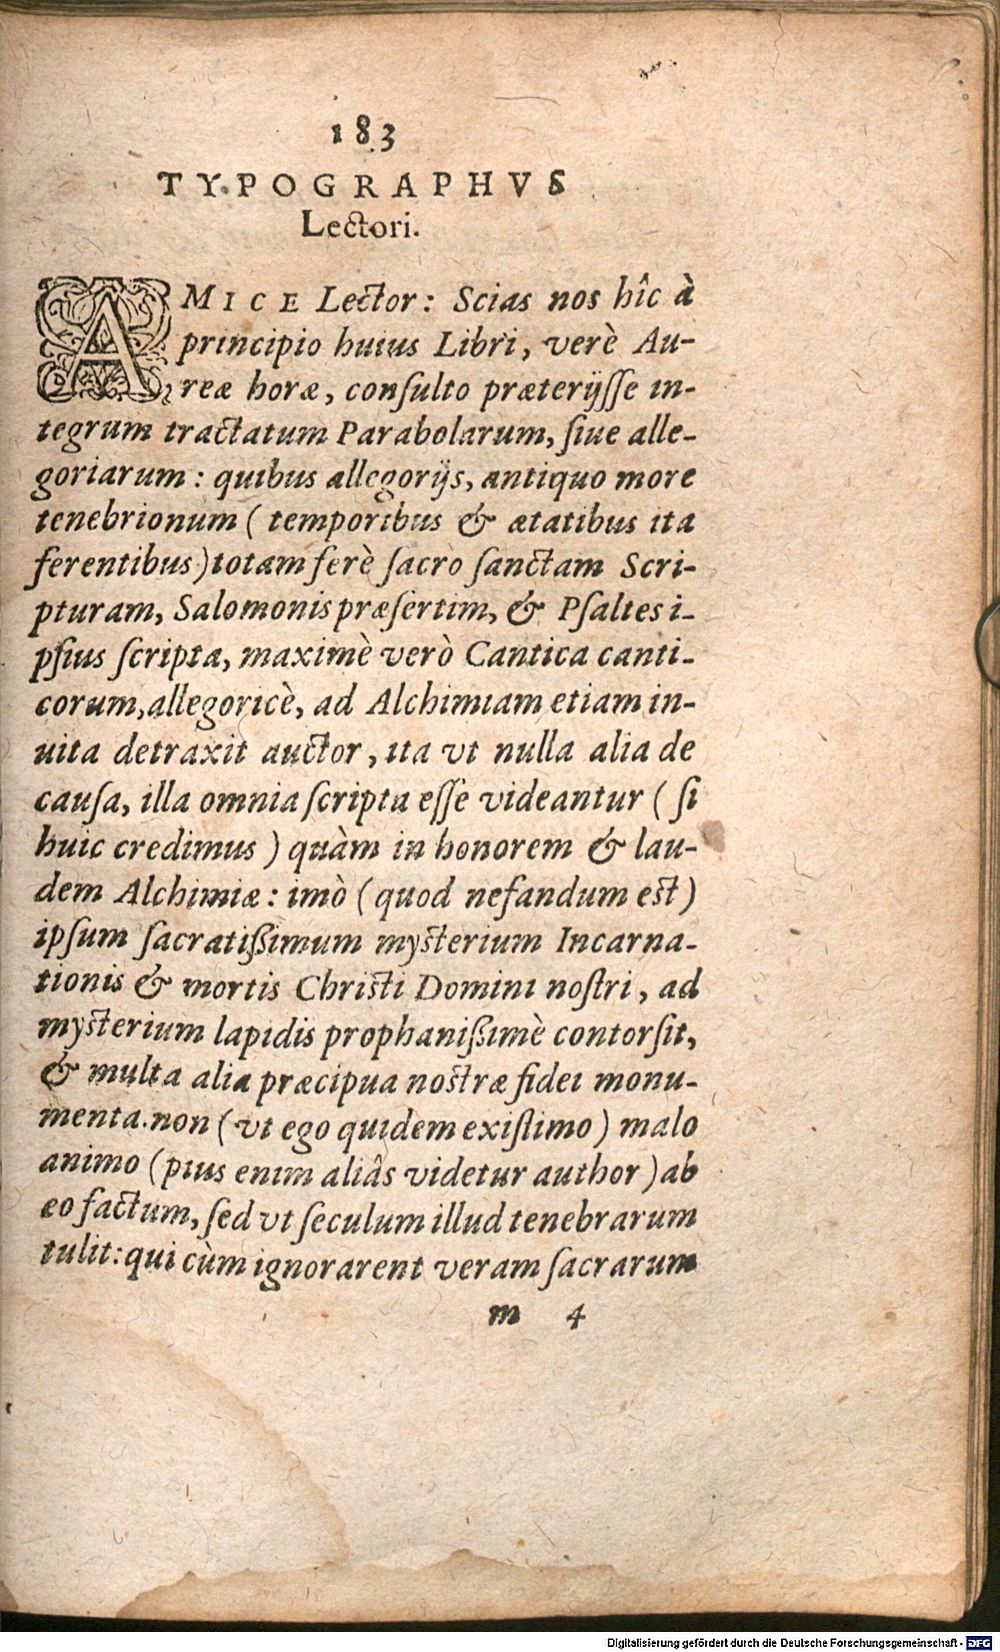 183
TYPOGRAPHVS
Lectori.
AMICE Lector: Scias nos hîc à
principio huius Libri, verè Au-
reæ horæ, conſulto præterijſſe in-
tegrum tractatum Parabolarum, ſiue alle-
goriarum: quibus allegorijs, antiquo more
tenebrionum ( temporibus & ætatibus ita
ferentibus) totam ferè ſacrò ſanctam Scri-
pturam, Salomonis præſertim, & Pſaltes i-
pſius ſcripta, maximè verò Cantica canti-
corum, allegoricè, ad Alchimiam etiam in-
uita detraxit auctor, ita vt nulla alia de
cauſa, illa omnia ſcripta eſſe videantur ( ſi
huic credimus ) quàm in honorem & lau-
dem Alchimiæ: imò (quod nefandum est)
ipſum ſacratißimum mysterium Incarna-
tionis & mortis Christi Domini noſtri, ad
mysterium lapidis prophanißimè contorſit,
& multa alia præcipua nostræ fidei monu-
menta. non (vt ego quidem exiſtimo) malo
animo (pius enim aliâs videtur author) ab
eo factum, ſed vt ſeculum illud tenebrarum
tulit: qui cùm ignorarent veram ſacrarum
m 4
Digitalisierung gefördert durch die Deutsche Forschungsgemeinschaft - DFG